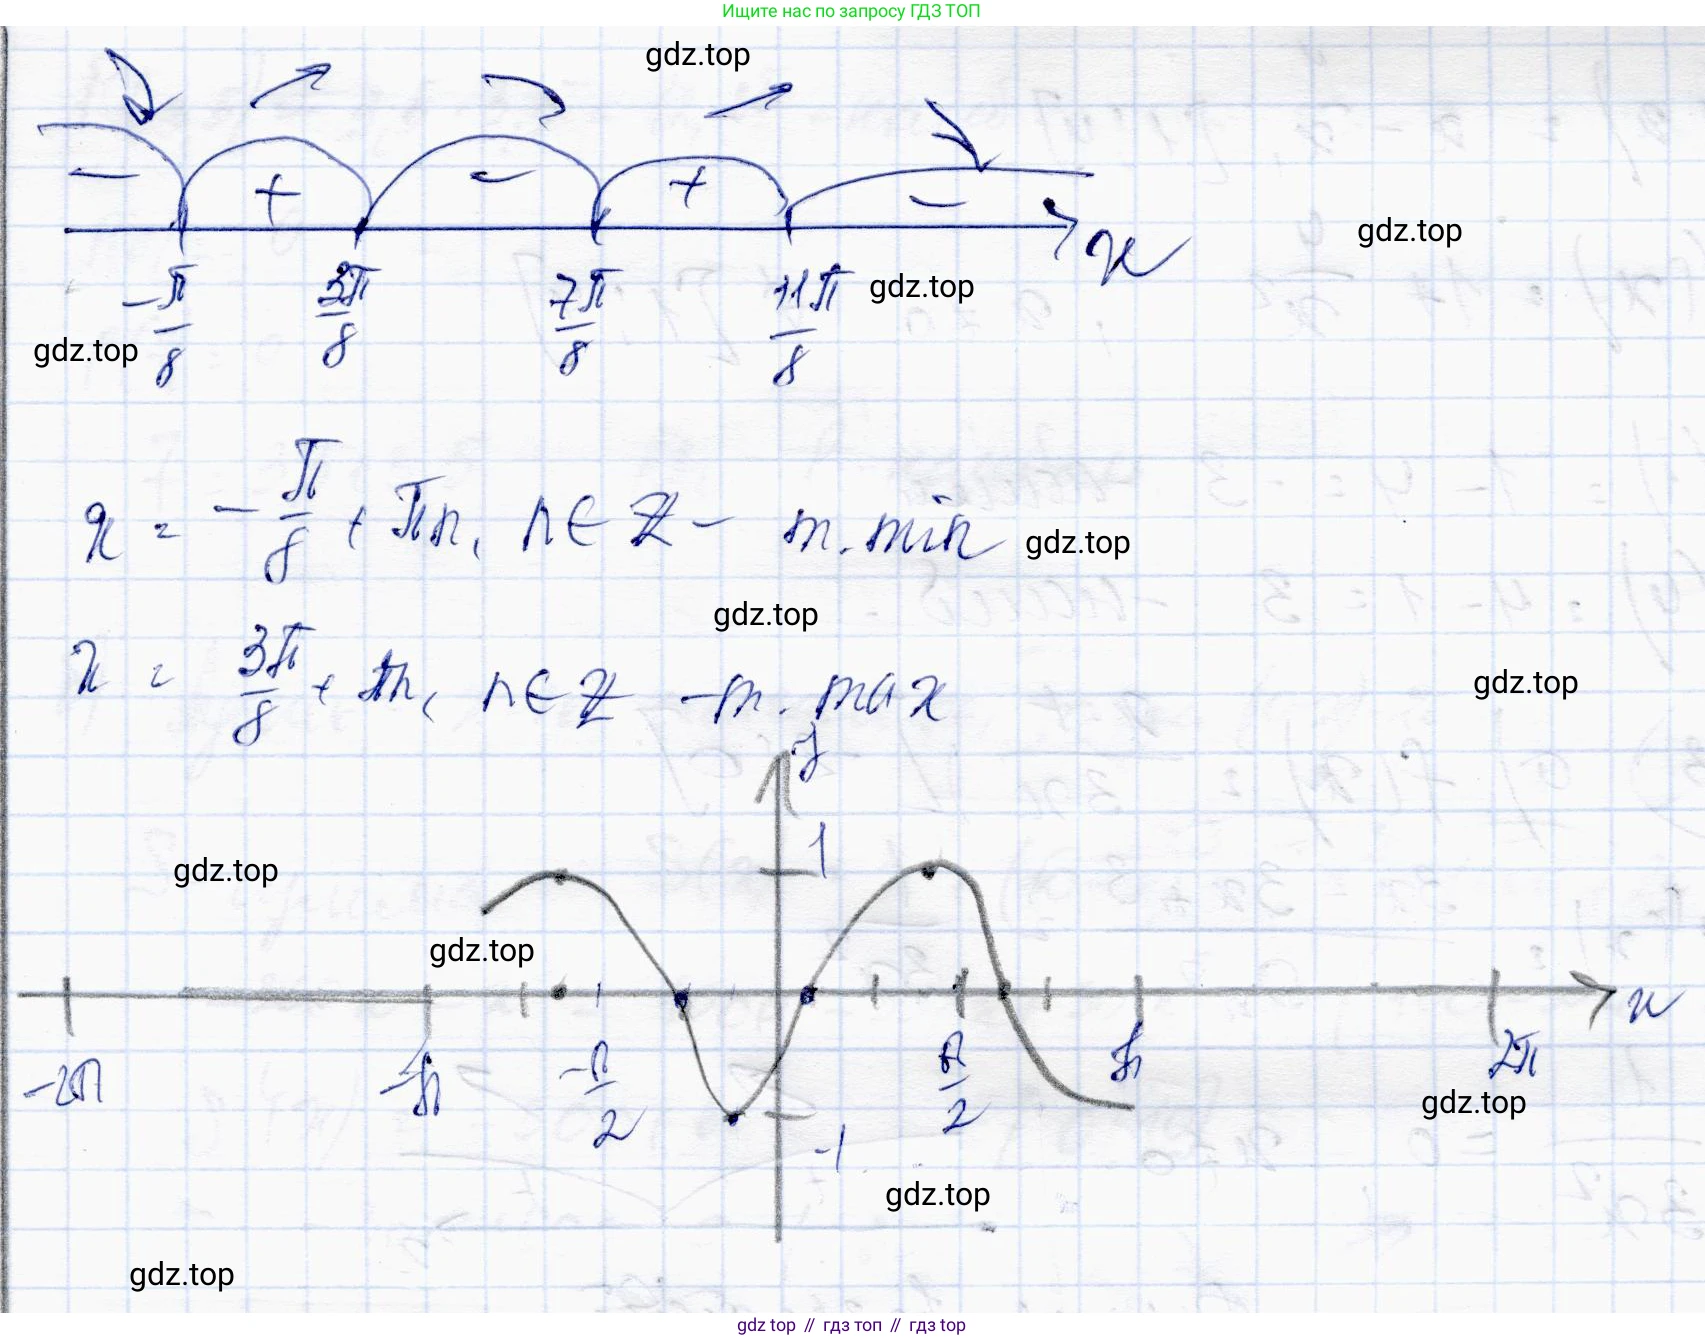 Ищите нас по запросу ГДЗ ТОП
gdz.top
− + − + − x
gdz.top
gdz.top
−π/8 3π/8 7π/8 11π/8
gdz.top
x = −π/8 + πn, n∈Z − m. min
gdz.top
gdz.top
x = 3π/8 + πn, n∈Z − m. max
gdz.top
y
1
gdz.top
gdz.top
x
−2π −π −π/2 π/2 π 2π
gdz.top
−1
gdz.top
gdz.top
gdz top // гдз топ // гдз top